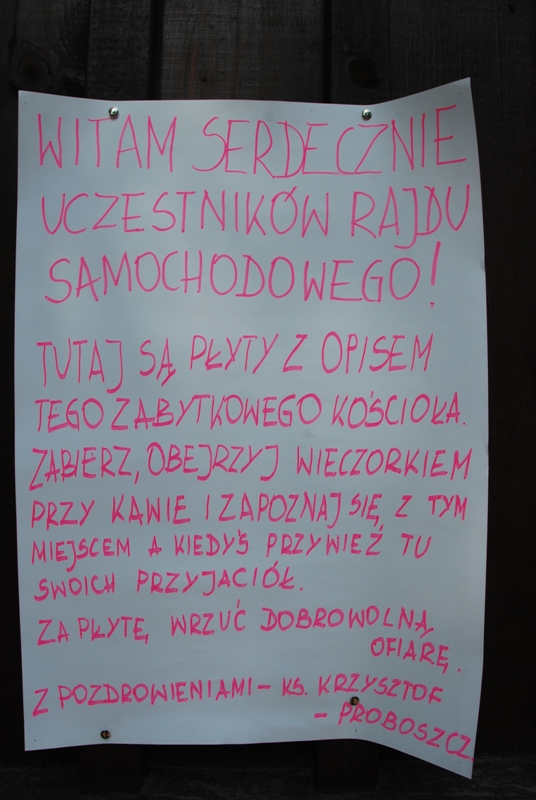 WITAM SERDECZNIE
UCZESTNIKÓW RAJDU
SAMOCHODOWEGO!
TUTAJ SĄ PŁYTY Z OPISEM
TEGO ZABYTKOWEGO KOŚCIOŁA.
ZABIERZ, OBEJRZYJ WIECZORKIEM
PRZY KAWIE I ZAPOZNAJ SIĘ Z TYM
MIEJSCEM A KIEDYŚ PRZYWIEŹ TU
SWOICH PRZYJACIÓŁ.
ZA PŁYTĘ, WRZUĆ DOBROWOLNĄ
OFIARĘ.
Z POZDROWIENIAMI – KS. KRZYSZTOF
– PROBOSZCZ.